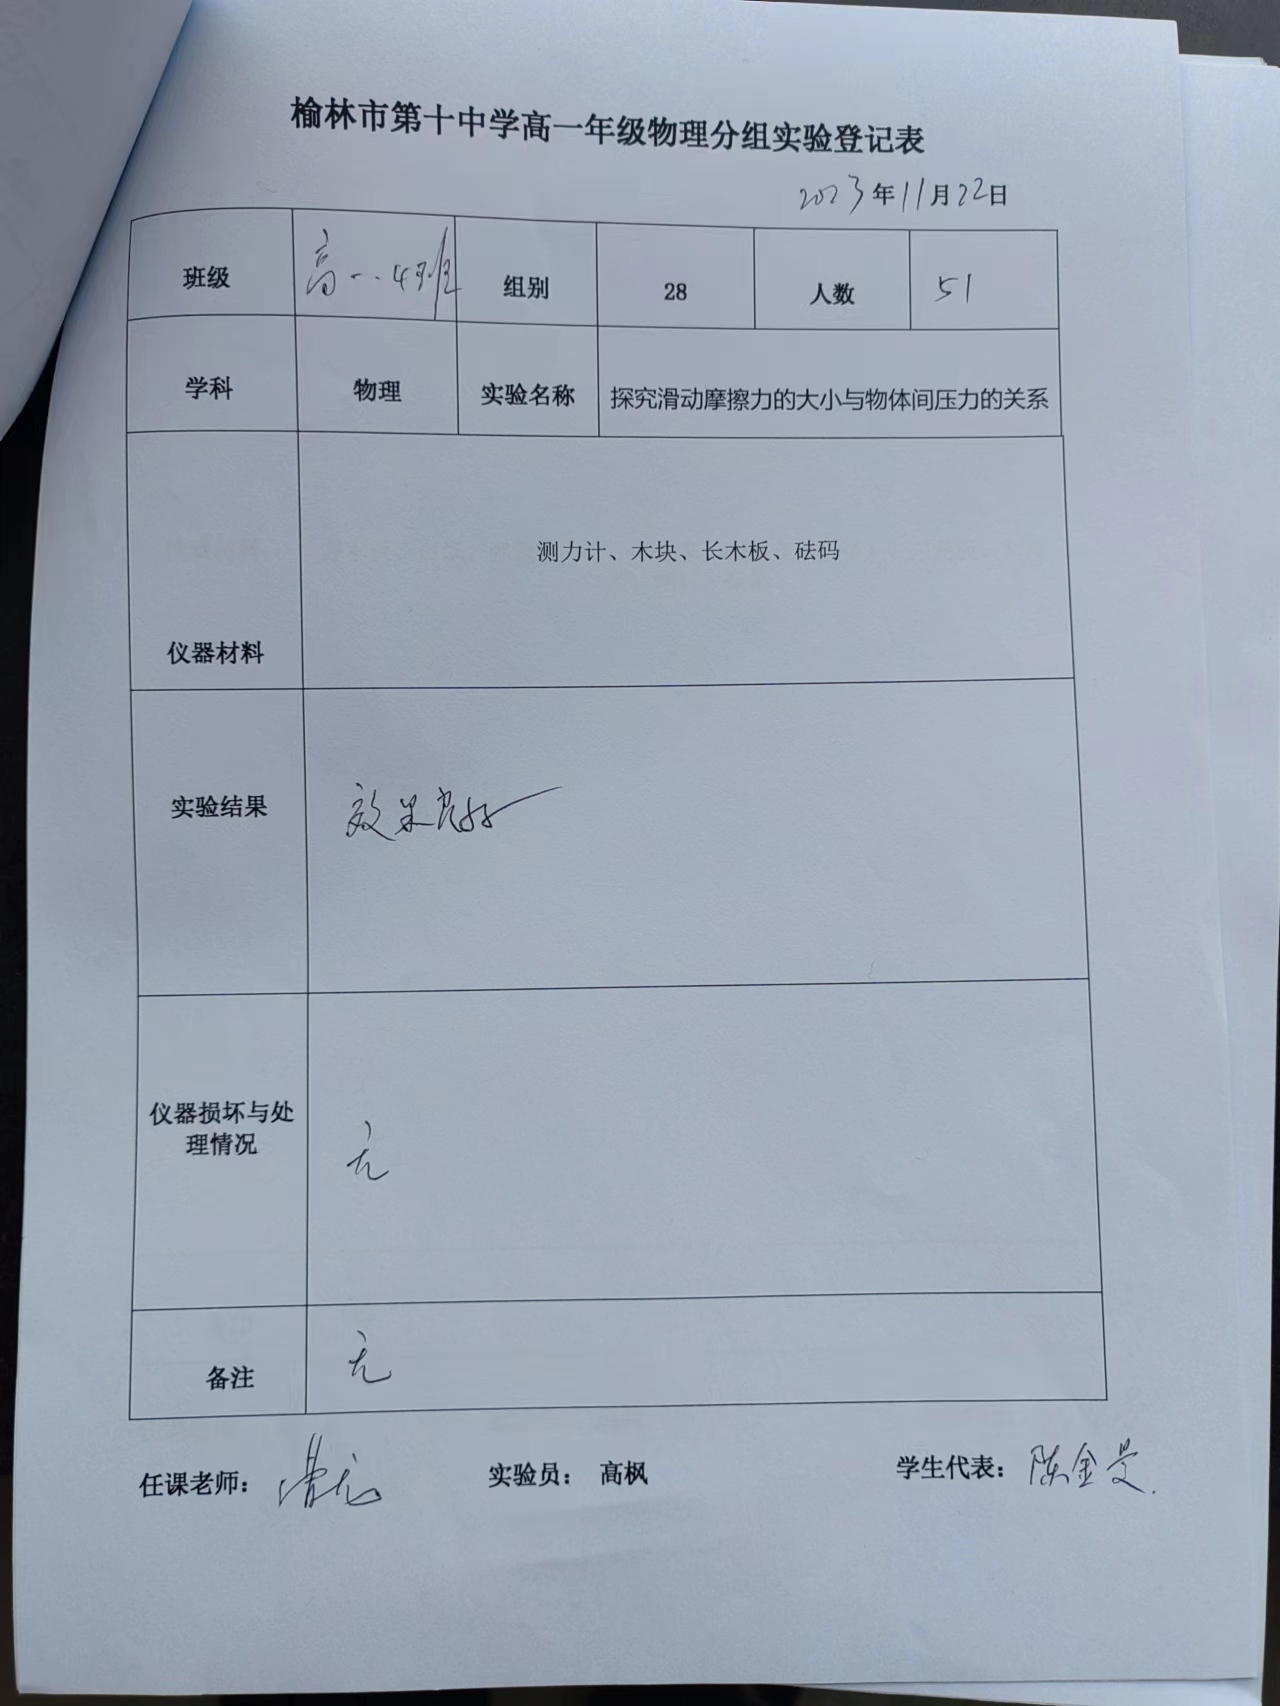 榆林市第十中学高一年级物理分组实验登记表
2023年11月22日
班级 高一.4班 组别 28 人数 51
学科 物理 实验名称 探究滑动摩擦力的大小与物体间压力的关系
测力计、木块、长木板、砝码
仪器材料
实验结果 效果良好
仪器损坏与处
理情况
无
备注 无
任课老师： 实验员： 高枫 学生代表： 陈金